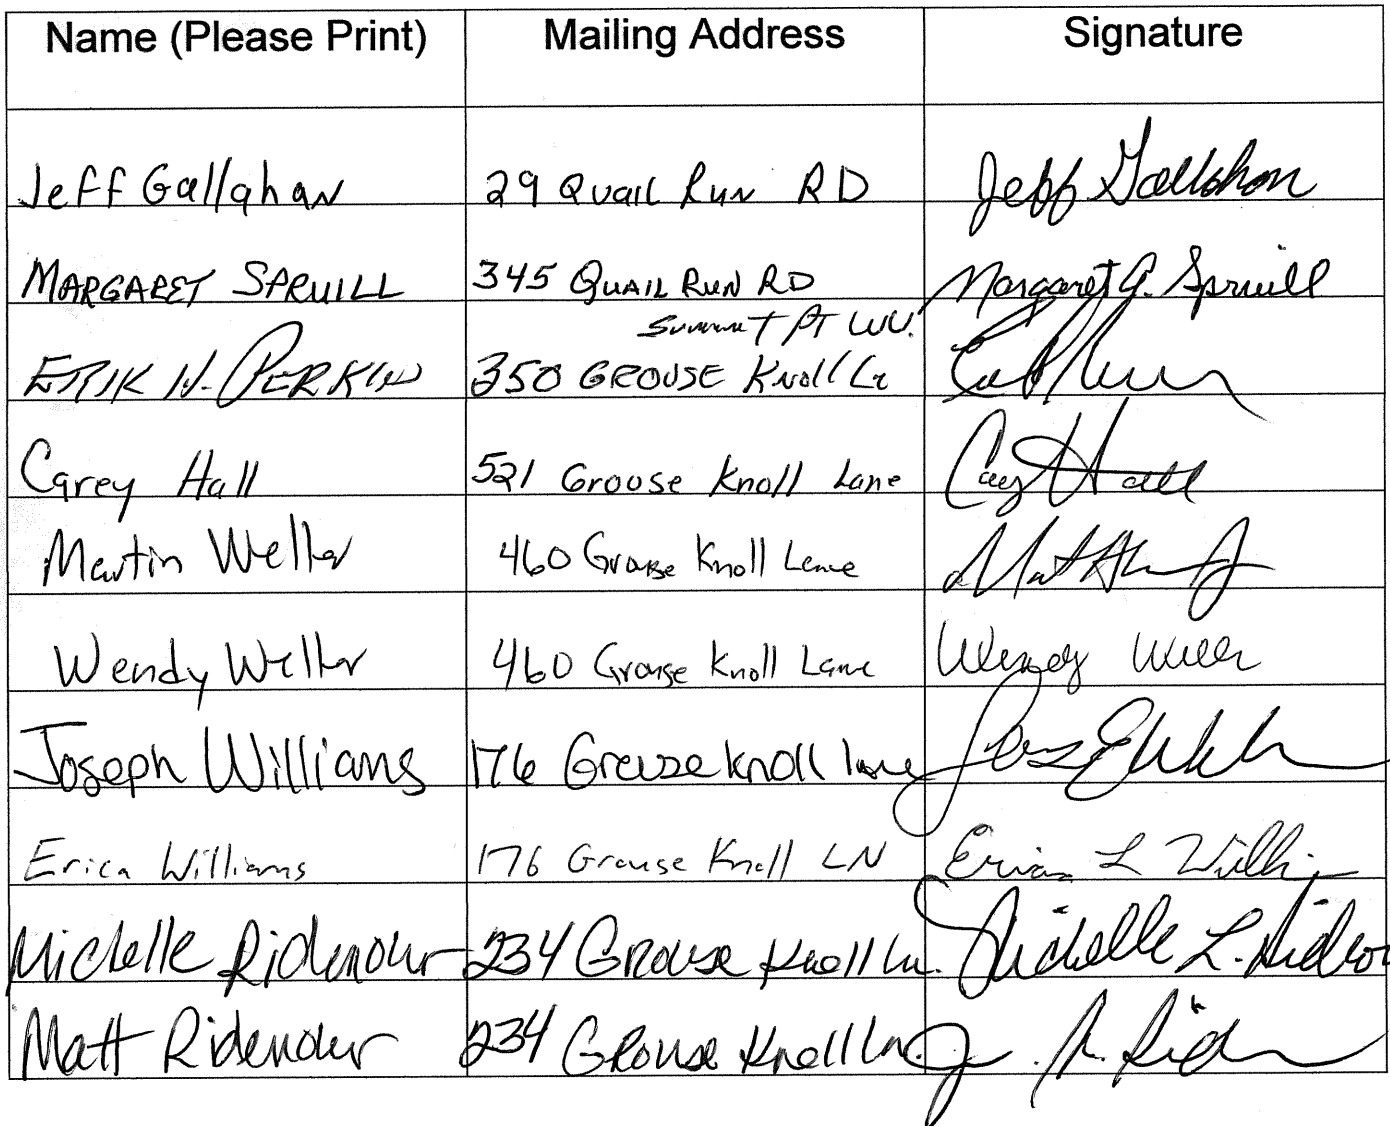 Name (Please Print) Mailing Address Signature
Jeff Gallaghan 29 Quail Run RD Jeff Gallahan
MARGARET SPRUILL 345 QUAIL RUN RD Margaret G. Spruill
Summit PT WV.
ERIK N. PERKINS 350 GROUSE Knoll Ln
Carey Hall 521 Grouse Knoll Lane Carey Hall
Martin Weller 460 Grouse Knoll Lane
Wendy Weller 460 Grouse Knoll Lane Wendy Weller
Joseph Williams 176 Grouse knoll lane
Erica Williams 176 Grouse Knoll LN Erica L Williams
Michelle Ridenour 234 Grouse Knoll Ln. Michelle L. Ridenour
Matt Ridenour 234 Grouse Knoll Ln.